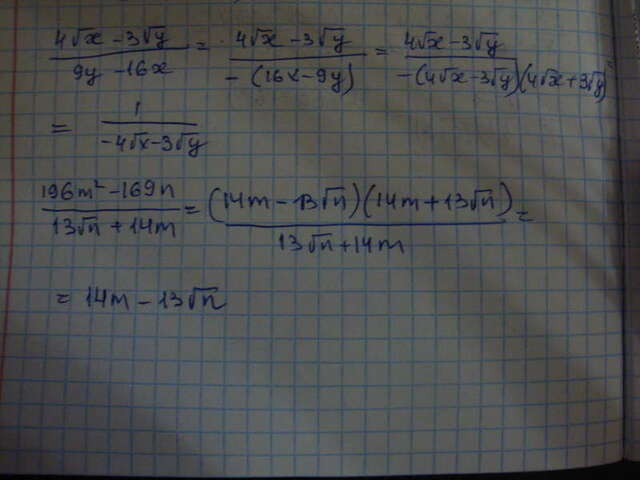 (4√x - 3√y)/(9y - 16x) = (4√x - 3√y)/(-(16x - 9y)) = (4√x - 3√y)/(-(4√x - 3√y)(4√x + 3√y)) =
= 1/(-4√x - 3√y)
(196m² - 169n)/(13√n + 14m) = ((14m - 13√n)(14m + 13√n))/(13√n + 14m) =
= 14m - 13√n